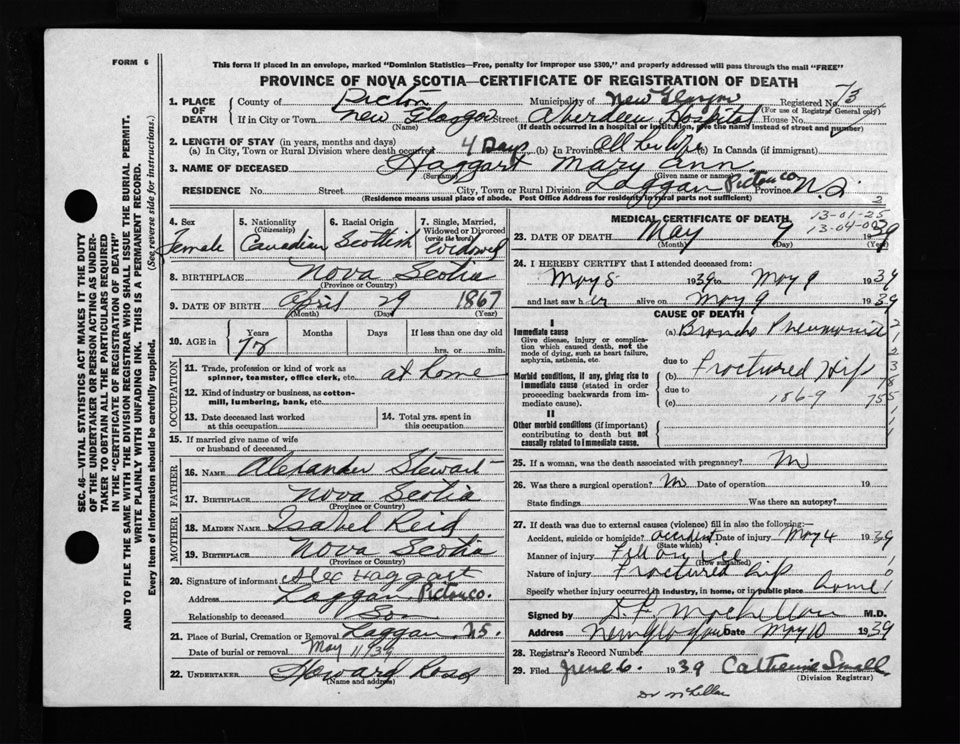 FORM 6
This form if placed in an envelope, marked "Dominion Statistics—Free, penalty for improper use $300," and properly addressed will pass through the mail "FREE"
PROVINCE OF NOVA SCOTIA—CERTIFICATE OF REGISTRATION OF DEATH
SEC. 46—VITAL STATISTICS ACT MAKES IT THE DUTY
OF THE UNDERTAKER OR PERSON ACTING AS UNDER-
TAKER TO OBTAIN ALL THE PARTICULARS REQUIRED
IN THE "CERTIFICATE OF REGISTRATION OF DEATH"
AND TO FILE THE SAME WITH THE DIVISION REGISTRAR WHO SHALL ISSUE THE BURIAL PERMIT.
WRITE PLAINLY WITH UNFADING INK. THIS IS A PERMANENT RECORD.
Every item of information should be carefully supplied. (See reverse side for instructions.)
1. PLACE OF DEATH
County of Picton Municipality of New Glasgow Registered No. 73
(For use of Registrar General only)
If in City or Town New Glasgow Street Aberdeen Hospital House No.
(Name) (If death occurred in a hospital or institution, give the name instead of street and number)
2. LENGTH OF STAY (in years, months and days)
(a) In City, Town or Rural Division where death occurred 4 Days (b) In Province All her life (c) In Canada (if immigrant)
3. NAME OF DECEASED Haggart Mary Ann
(Surname) (Given name or names)
RESIDENCE No. Street City, Town or Rural Division Laggan Picton Co Province N.S.
(Residence means usual place of abode. Post Office Address for residents in rural parts not sufficient) 2
4. Sex Female
5. Nationality (Citizenship) Canadian
6. Racial Origin Scottish
7. Single, Married, Widowed or Divorced (write the word) Widowed
8. BIRTHPLACE Nova Scotia
(Province or Country)
9. DATE OF BIRTH April 29 1867
(Month) (Day) (Year)
10. AGE in Years Months Days If less than one day old
72 hrs. or min.
OCCUPATION
11. Trade, profession or kind of work as
spinner, teamster, office clerk, etc. at home
12. Kind of industry or business, as cotton-
mill, lumbering, bank, etc.
13. Date deceased last worked
at this occupation
14. Total yrs. spent in
this occupation
15. If married give name of wife
or husband of deceased
FATHER
16. NAME Alexander Stewart
17. BIRTHPLACE Nova Scotia
(Province or Country)
MOTHER
18. MAIDEN NAME Isabel Reid
19. BIRTHPLACE Nova Scotia
(Province or Country)
20. Signature of informant Alec Haggart
Address Laggan, Picton Co.
Relationship to deceased Son
21. Place of Burial, Cremation or Removal Laggan N.S.
Date of burial or removal May 11/39
22. UNDERTAKER Howard Ross
(Name and address)
MEDICAL CERTIFICATE OF DEATH
13-01-25
23. DATE OF DEATH May 9 1939
(Month) (Day) (Year)
24. I HEREBY CERTIFY that I attended deceased from
May 5 1939 to May 9 1939
and last saw her alive on May 9 1939
CAUSE OF DEATH
I
Immediate cause (a) Broncho Pneumonia
Give disease, injury or complica-
tion which caused death, not the
mode of dying, such as heart failure,
asphyxia, asthenia, etc.
due to
Morbid conditions, if any, giving rise to
immediate cause (stated in order
proceeding backwards from
immediate cause).
(b) Fractured Hip
due to
(c) 186-9
II
Other morbid conditions (if important)
contributing to death but not
causally related to immediate cause.
25. If a woman, was the death associated with pregnancy? No
26. Was there a surgical operation? No Date of operation 19
State findings Was there an autopsy?
27. If death was due to external causes (violence) fill in also the following:—
Accident, suicide or homicide? accident Date of injury May 4 1939
(State which)
Manner of injury Fell on ice
(How sustained)
Nature of injury Fractured hip
Specify whether injury occurred in industry, in home, or in public place home
Signed by M.D.
Address New Glasgow Date May 10 1939
28. Registrar's Record Number
29. Filed June 6. 1939 Catherine Small
(Division Registrar)
Dr McKellar